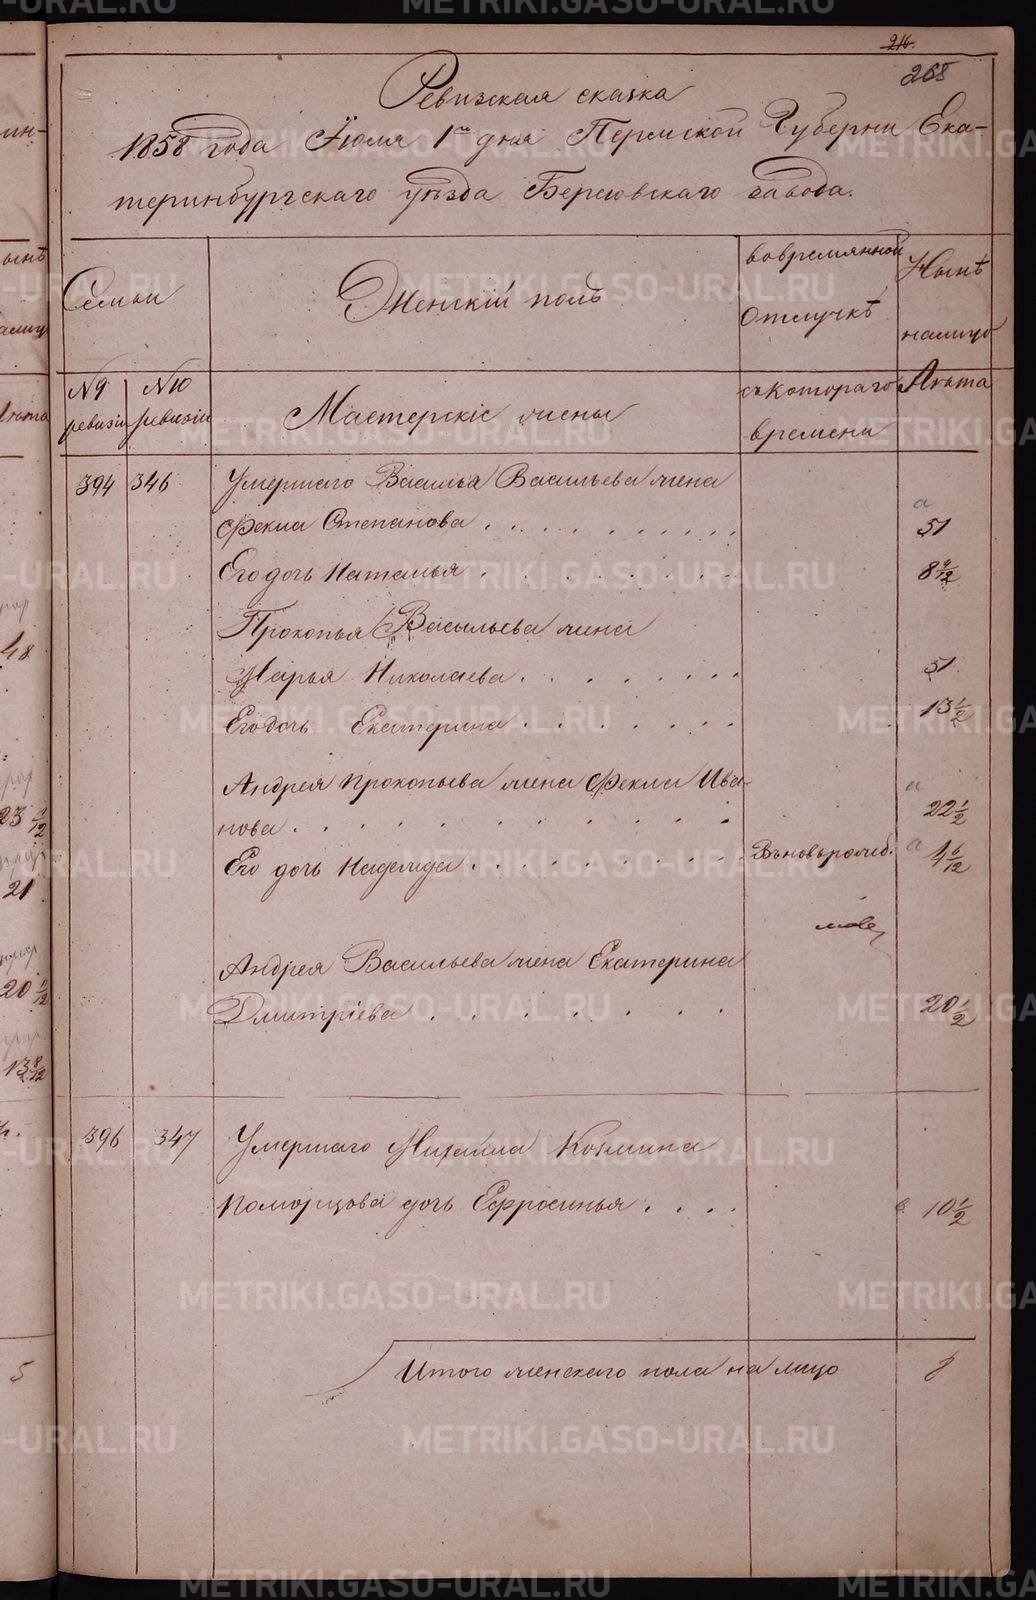 216.
268
Ревизская сказка
1858 года Июля 1го дня Пермской Губерни Ека-
теринбургскаго уѣзда Березовскаго завода.
Семьи
Женскій полъ
вовремянной
Отлучкѣ
Нынѣ
налицо
N9 ревизіи
N10 ревизіи
Мастерскіе жены
съкотораго
времени
Лѣта
394 346 Умершаго Василья Васильева жена
Фекла Степанова . . . . . . . . . 51
Его дочь Наталья . . . . . . . . 8 4/12
Прокопья Васильева жена
Марья Николаева . . . . . . . . 51
Его дочь Екатерина . . . . . . . 13 1/2
Андрея Прокопьева жена Фекла Ива-
нова . . . . . . . . . . . 22 1/2
Его дочь Надежда . . . . . . . . . Вновьрожд. 1 6/12
Андрея Васильева жена Екатерина
Дмитріева . . . . . . . . 20 1/2
396 347 Умершаго Михайла Козмина
Поморцова дочь Ефросинья . . . . 10 1/2
Итого женскаго пола на лицо 8
METRIKI.GASO-URAL.RU